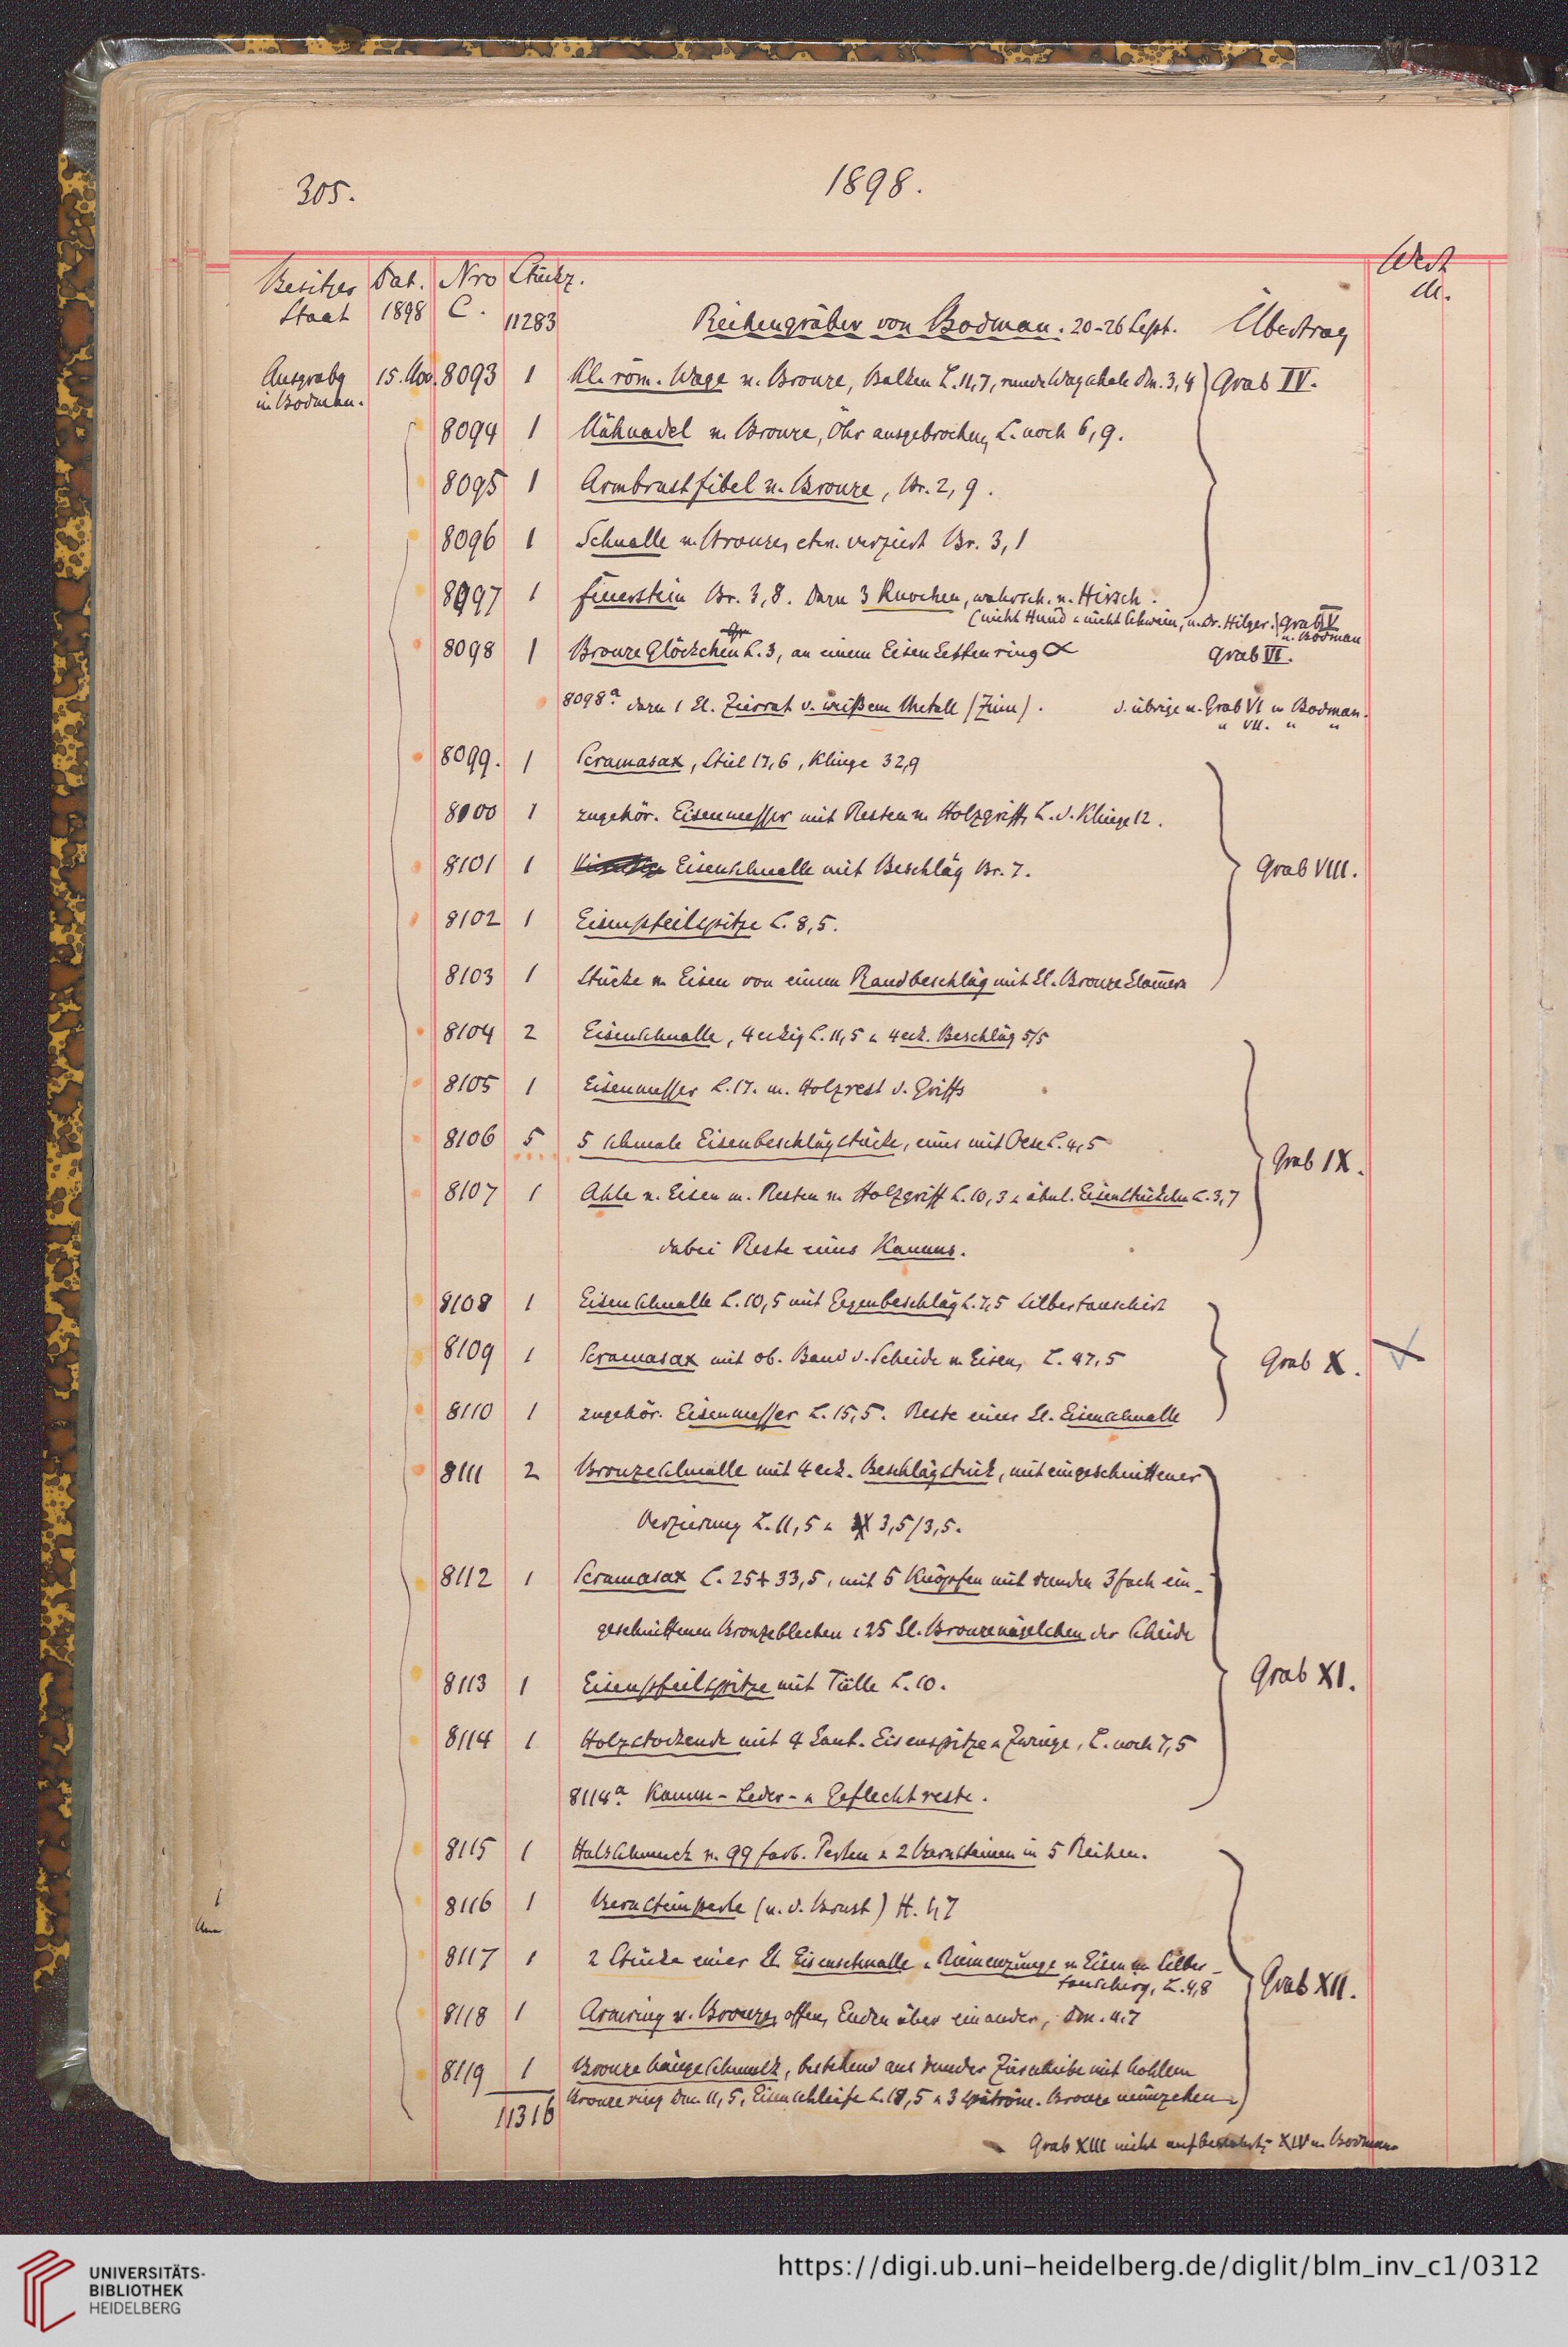 305.
1898.
Besitzer Dat. Nro Stückz. Wert
Staat 1898 C. 11283 M.
Reihengräber von Bodman. 20-26 Sept. Übertrag
Ausgrabg 15. Nov. 8093 1 Kl. röm. Wage v. Bronze, Balken L. 11,7, runde Wagschale Dm. 3,4 Grab IV.
in Bodman.
8094 1 Nähnadel v. Bronze, Öhr ausgebrochen, L. noch 6,9.
8095 1 Armbrustfibel v. Bronze, Br. 2,9.
8096 1 Schnalle v. Bronze, etw. verziert Br. 3,1
8097 1 Feuerstein Br. 3,8. Dazu 3 Knochen, wahrsch. v. Hirsch.
(nicht Hund u. nicht Schwein, n. Dr. Hilger.) Grab V
n. Bodman
8098 1 Bronze Glöckchen L. 3, an einem Eisenkettenring Grab VI.
8098a dazu 1 kl. Zierrat v. weißem Metall (Zinn). d. übrige v. Grab VI in Bodman.
" VII. " "
8099. 1 Scramasax, Stiel 17,6, Klinge 32,9
8100 1 zugehör. Eisenmesser mit Resten v. Holzgriff, L. d. Klinge 12.
8101 1 Eisenschnalle mit Beschläg Br. 7. Grab VIII.
8102 1 Eisenpfeilspitze L. 8,5.
8103 1 Stücke v. Eisen von einem Randbeschläg mit kl. Bronzeklam̄ern
8104 2 Eisenschnalle, 4eckig L. 11,5 u. 4eck. Beschläg 5/5
8105 1 Eisenmesser L. 17. m. Holzrest d. Griffs
8106 5 5 schmale Eisenbeschlägstücke, eines mit Oese L. 4,5 Grab IX.
8107 1 Ahle v. Eisen m. Resten v. Holzgriff L. 10,3 u. ähnl. Eisenstückchen L. 3,7
dabei Reste eines Kamms.
8108 1 Eisenschnalle L. 10,5 mit Gegenbeschläg L. 7,5 silbertauschirt
8109 1 Scramasax mit ob. Band d. Scheide v. Eisen, L. 47,5 Grab X.
8110 1 zugehör. Eisenmesser L. 15,5. Reste einer kl. Eisenschnalle
8111 2 Bronzeschnalle mit 4eck. Beschlägstück, mit eingeschnittener
Verzierung L. 11,5 u. 3,5/3,5.
8112 1 Scramasax L. 25 + 33,5, mit 5 Knöpfen mit runden 3fach ein-
geschnittenen Bronzeblechen u. 25 kl. Bronzenägelchen der Scheide
8113 1 Eisenpfeilspitze mit Tülle L. 10. Grab XI.
8114 1 Holzstockende mit 4 kant. Eisenspitze u. Zwinge, L. noch 7,5
8114a Kamm- Leder- u. Geflechtreste.
8115 1 Halsschmuck v. 99 farb. Perlen u. 2 Bernsteinen in 5 Reihen.
8116 1 Bernsteinperle (v. d. Brust) H. 1,7
8117 1 2 Stücke einer kl. Eisenschnalle u. Riemenzunge v. Eisen m. Silber-
tauschirg, L. 4,8 Grab XII.
8118 1 Armring v. Bronze, offen, Enden über einander, Dm. 4,7
8119 1 Bronzehängeschmuck, bestehend aus runder Zierscheibe mit hohlem
Bronzering Dm. 11,5, Eisenschleife L. 18,5 u. 3 spätröm. Bronzemünzchen
11316
Grab XIII nicht aufbewahrt, XIV in Bodman
UNIVERSITÄTS-
BIBLIOTHEK
HEIDELBERG
https://digi.ub.uni-heidelberg.de/diglit/blm_inv_c1/0312